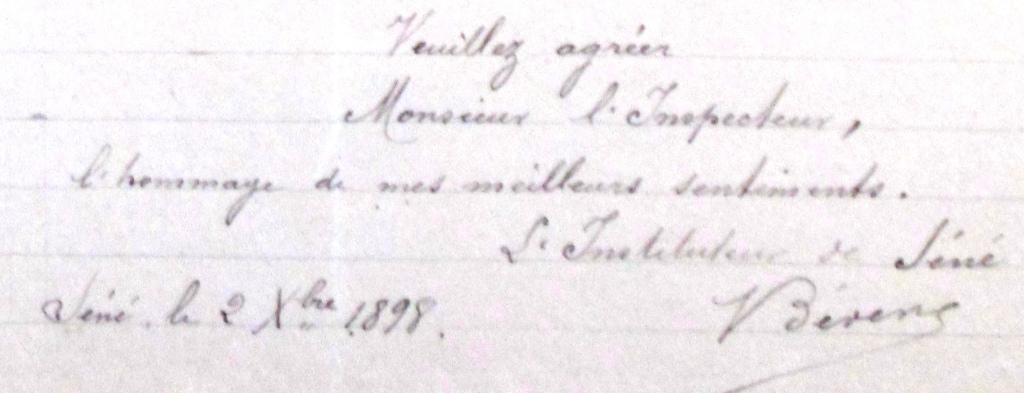 Veuillez agréer
Monsieur l'Inspecteur,
l'hommage de mes meilleurs sentiments.
L'Instituteur de Séné
Séné, le 2 Xbre 1898.